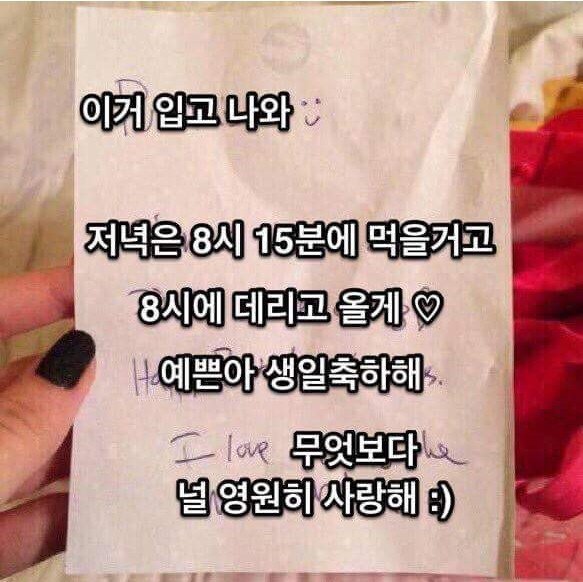 이거 입고 나와
저녁은 8시 15분에 먹을거고
8시에 데리고 올게 ♡
예쁜아 생일축하해
I love 무엇보다
널 영원히 사랑해 :)